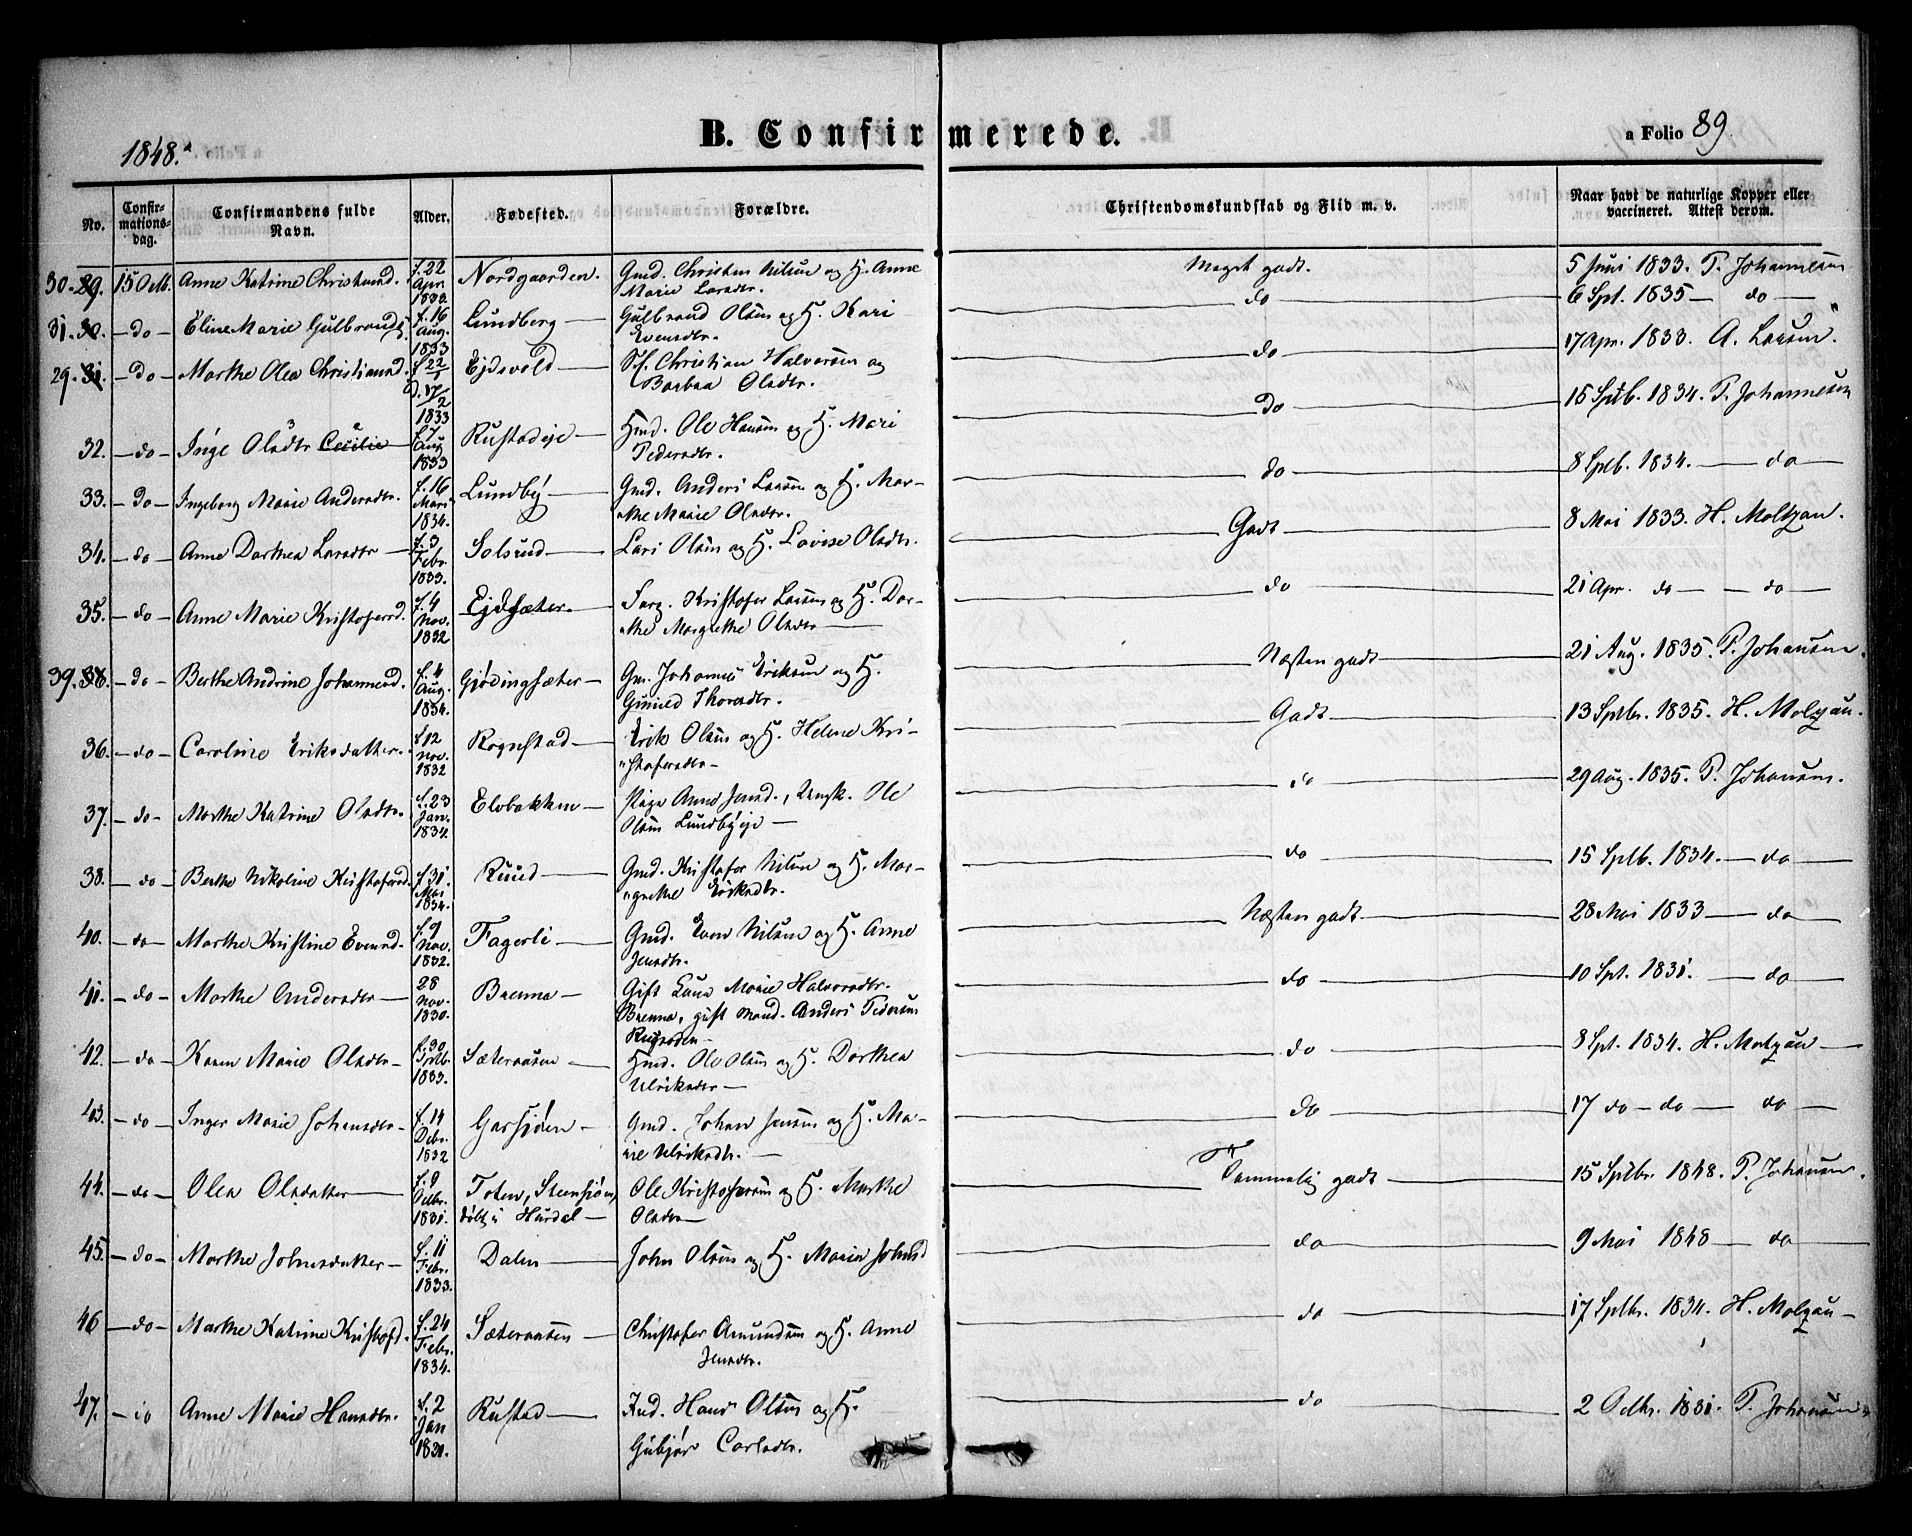 1848.
B. Confirmerede.
a Folio 89.
No.
Confir-
mations-
dag.
Confirmandens fulde
Navn.
Alder.
Fødested.
Forældre.
Christendomskundskab og Flid m. v.
Naar havt de naturlige Kopper eller
vaccineret. Attest derom.
30. 29. 15 Oct. Anne Katrine Christensd. f. 22 Apr. 1833. Nordgaarden. Gmd. Christen Nilsen og H. Anne
Marie Larsdtr. Meget godt. 5 Juni 1833. P. Johannesen
31. 30. do Eline Marie Gulbrandsd. f. 16 Aug. 1833 Lundberg Gulbrand Olsen og H. Kari
Evensdtr. do 6 Spt. 1835 do
29. 31. do Marthe Olea Christiansd. f. 22/1 D. 17/2 1833 Ejdsvold Sf. Christian Halvorsen og
Barbra Olsdtr. do 17 Apr. 1833. A. Larsen
32. do Inge Olsdtr Cecilie f. 7 Aug 1833 Rustadeje Hmd. Ole Hansen og H. Mari
Pedersdtr. Do 15 Sptb. 1834. P. Johannesen
33. Do Ingeborg Marie Andersdtr. f. 16 Mars 1834. Lundby Gmd. Anders Larsen og H. Mar-
the Marie Olsdtr. do 8 Sptb. 1834. do
34. do Anne Dorthea Larsdtr f. 3 Febr. 1833. Solsrud Lars Olsen og H. Lovise Olsdtr. Godt 8 Mai 1833. H. Moltzau.
35. do Anne Marie Kristofersd. f. 4 Nov. 1832 Ejdsæter. Kristofer Larsen og H. Dor-
the Margrethe Olsdtr do 21 Apr. do do
39. 36. do Berthe Andrine Johannesd. f. 4 Aug. 1834. Gjødingsæter Gm. Johannes Eriksen og H.
Gunild Thorsdtr. Næsten godt 21 Aug. 1835. P. Johansen.
36. do Caroline Eriksdatter. f. 12 Nov. 1832 Rognstad Erik Olsen og H. Helene Kri-
stofersdtr Godt 13 Sptbr. 1835. H. Molzau.
37. do Marthe Katrine Olsdtr. f. 23 Jan. 1834. Elvbakken Pige Anne Jensd., Ungk. Ole
Olsen Lundbyeje do 29 Aug. 1835. P. Johansen.
38. do Berthe Nikoline Kristofersd. f. 31 Mai 1834. Ruud Gmd. Kristofer Nilsen og H. Mar-
grethe Eriksdtr. do 15 Sptb. 1834. do
40. do Marthe Kristine Evensd. f. 7 Nov. 1832. Fagerli Gmd. Even Nilsen og H. Anne
Jensdtr. Næsten godt 28 Mai 1833 do
41. do Marthe Andersdtr 28 Nov. 1830. Brenna Gift Marie Halvorsdtr.
Brenna, gift Mand. Anders Pedersen
do 10 Spt. 1831. do
42. do Karen Marie Olsdtr f. 30 Sptb. 1833. Sæteraasen Hmd. Ole Olsen og H. Dorthea
Ulriksdtr do 8 Spt. 1834. H. Molzau
43. do Inger Marie Johansdtr f. 14 Debr. 1832 Garsjøen Gmd. Johan Jensen og H. Ma-
rie Ulriksdtr. do 17 do do do
44. do Olea Olsdatter f. 9 Octbr. 1831. Toten, Steensjøen, døbt i Hurdal Ole Kristofersen og H. Marthe
Olsdtr Temmelig godt 15 Sptbr. 1848. P. Johansen.
45. do Marthe Johnsdatter f. 11 Febr. 1833. Dalen John Olsen og H. Maria Johnsd do 9 Mai 1848 do
46 do Marthe Katrine Kristofd. f. 24 Febr. 1834. Sæteraasen Christofer Amundsen og H. Anne
Jensdtr. do 17 Sptbr. 1834. H. Molzau
47. do Anne Marie Hansdtr. f. 2 Jan 1831. Rustad Hans Olsen og H.
Gubjør Carlsdtr. do 2 Octbr. 1831. P. Johansen